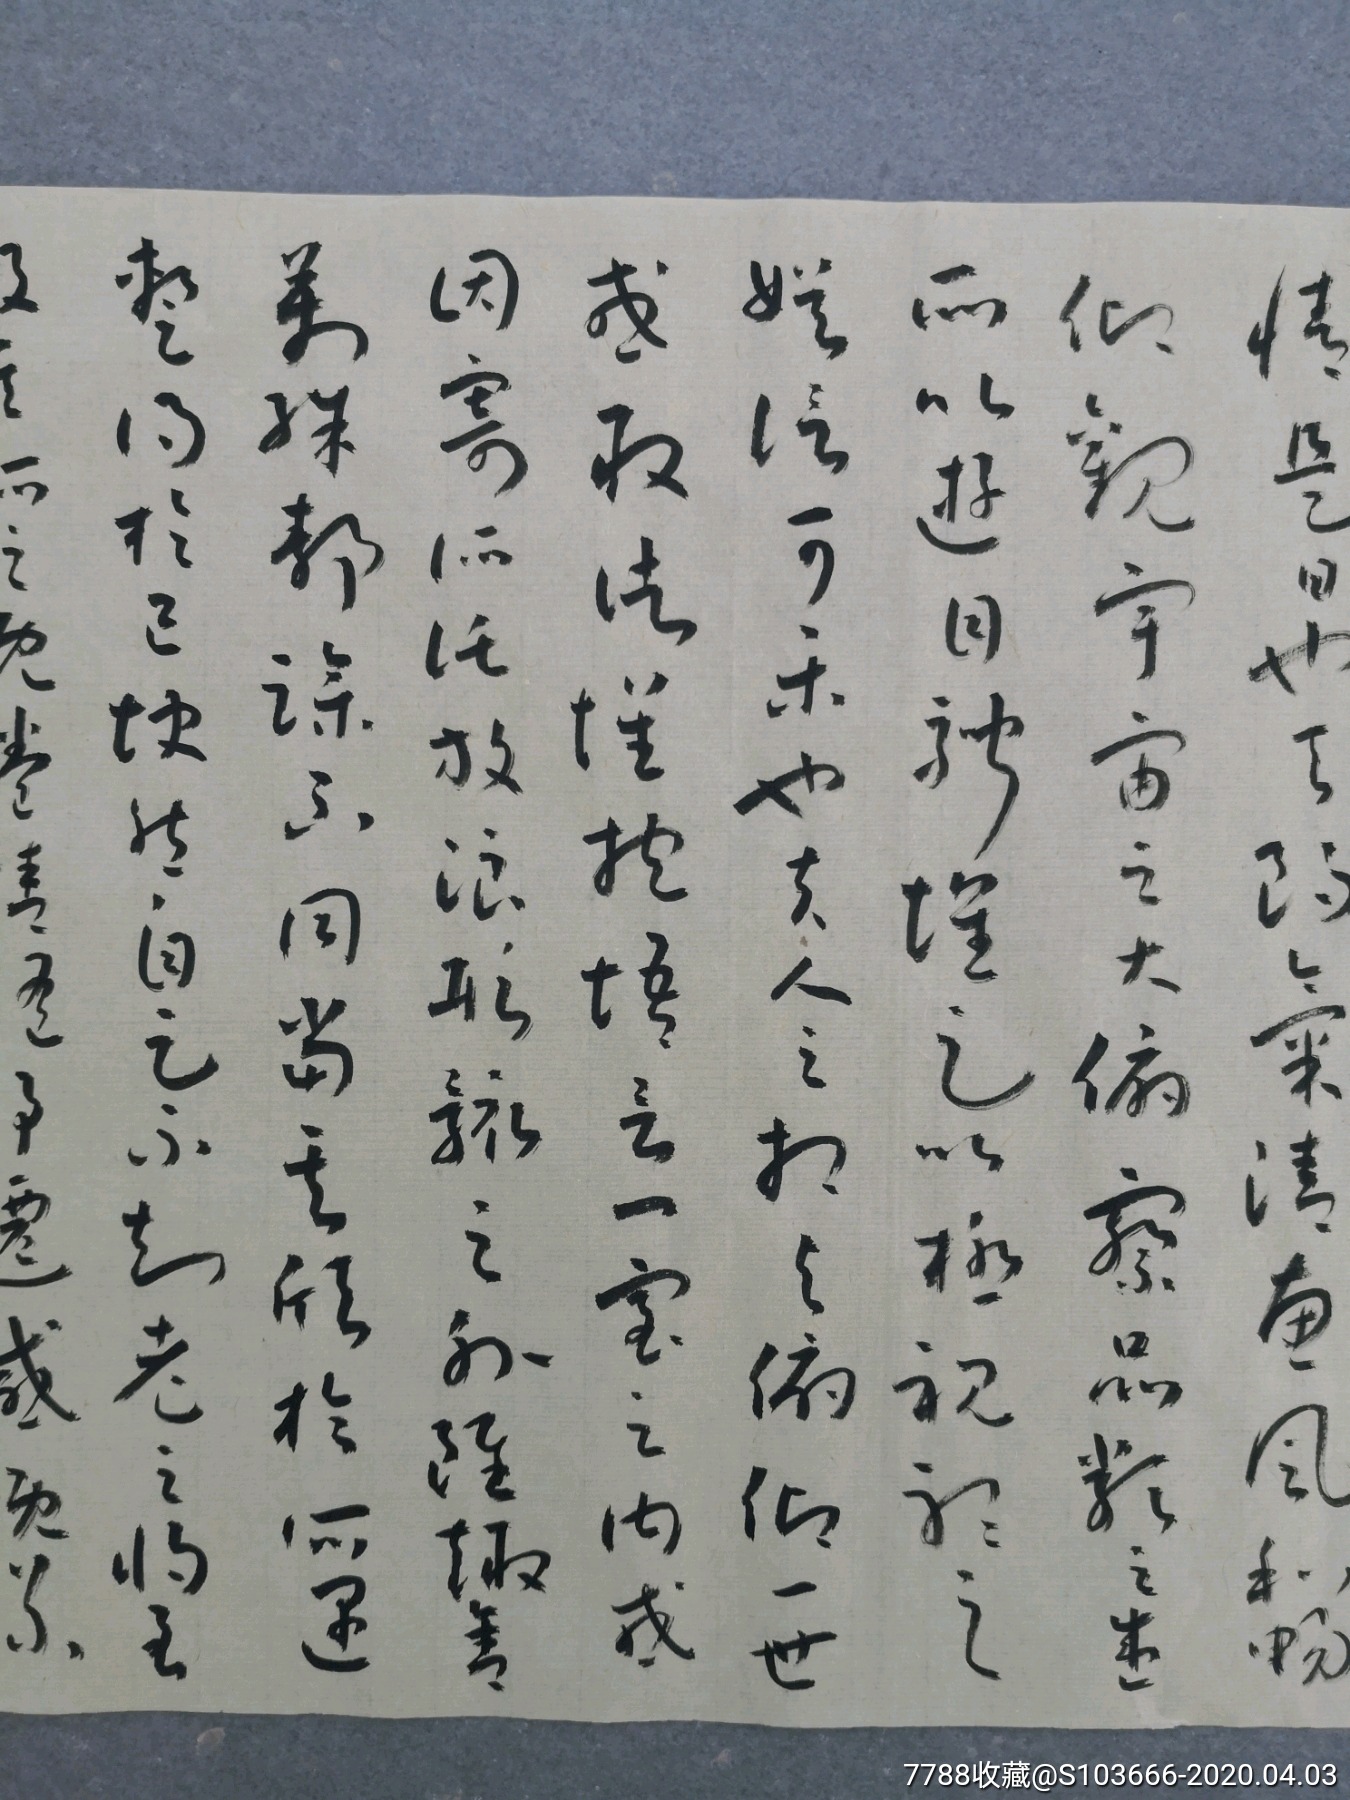 情是日也天朗氣清惠風和暢
仰觀宇宙之大俯察品類之盛
所以遊目騁懷足以極視聽之
娛信可樂也夫人之相與俯仰一世
或取諸懷抱悟言一室之內或
因寄所託放浪形骸之外雖趣舍
萬殊靜躁不同當其欣於所遇
暫得於己快然自足不知老之將至
及其所之既惓情隨事遷感慨係
7788收藏@S103666-2020.04.03